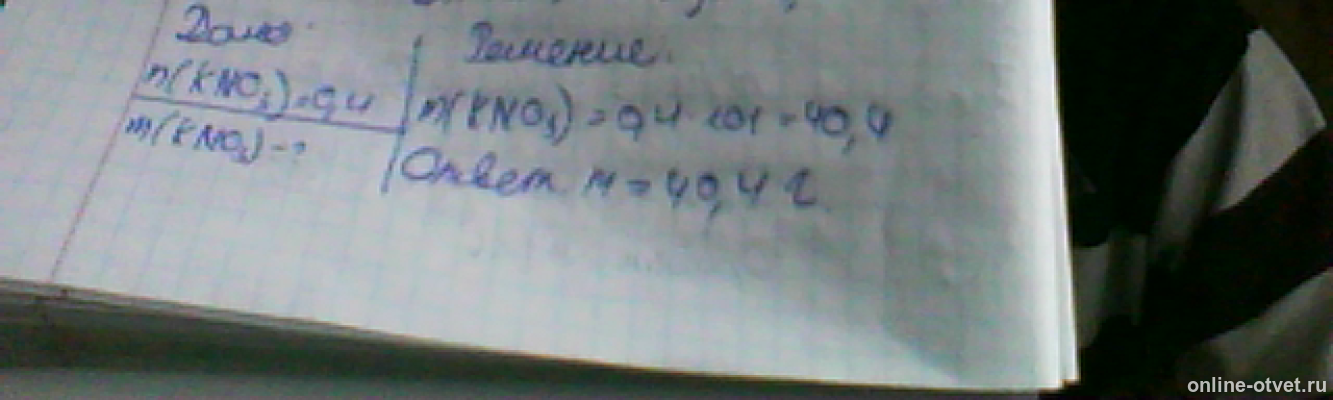 Дано:
n(KNO3)=0,4
m(KNO3)-?
Решение.
m(KNO3)=0,4·101=40,4
Ответ. M=40,4 г
online-otvet.ru